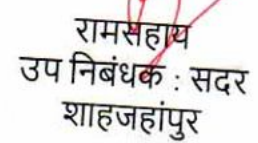 रामसहाय
उप निबंधक : सदर
शाहजहांपुर